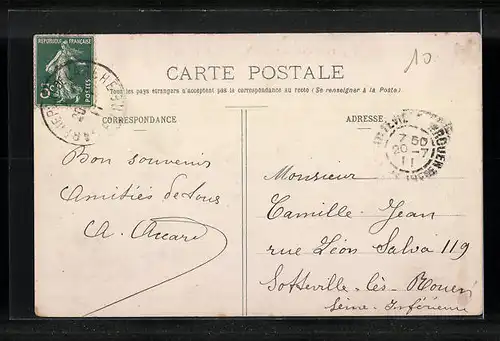 10
REPUBLIQUE FRANÇAISE
5c
CARTE POSTALE
Tous les pays étrangers n'acceptent pas la correspondance au recto (Se renseigner à la Poste.)
CORRESPONDANCE
ADRESSE
7 50
20-7
11
Bon souvenir
Amitiés de tous
A.
Monsieur
Camille Jean
rue Léon Salva 119
Sotteville-lès-Rouen
Seine-Inférieure